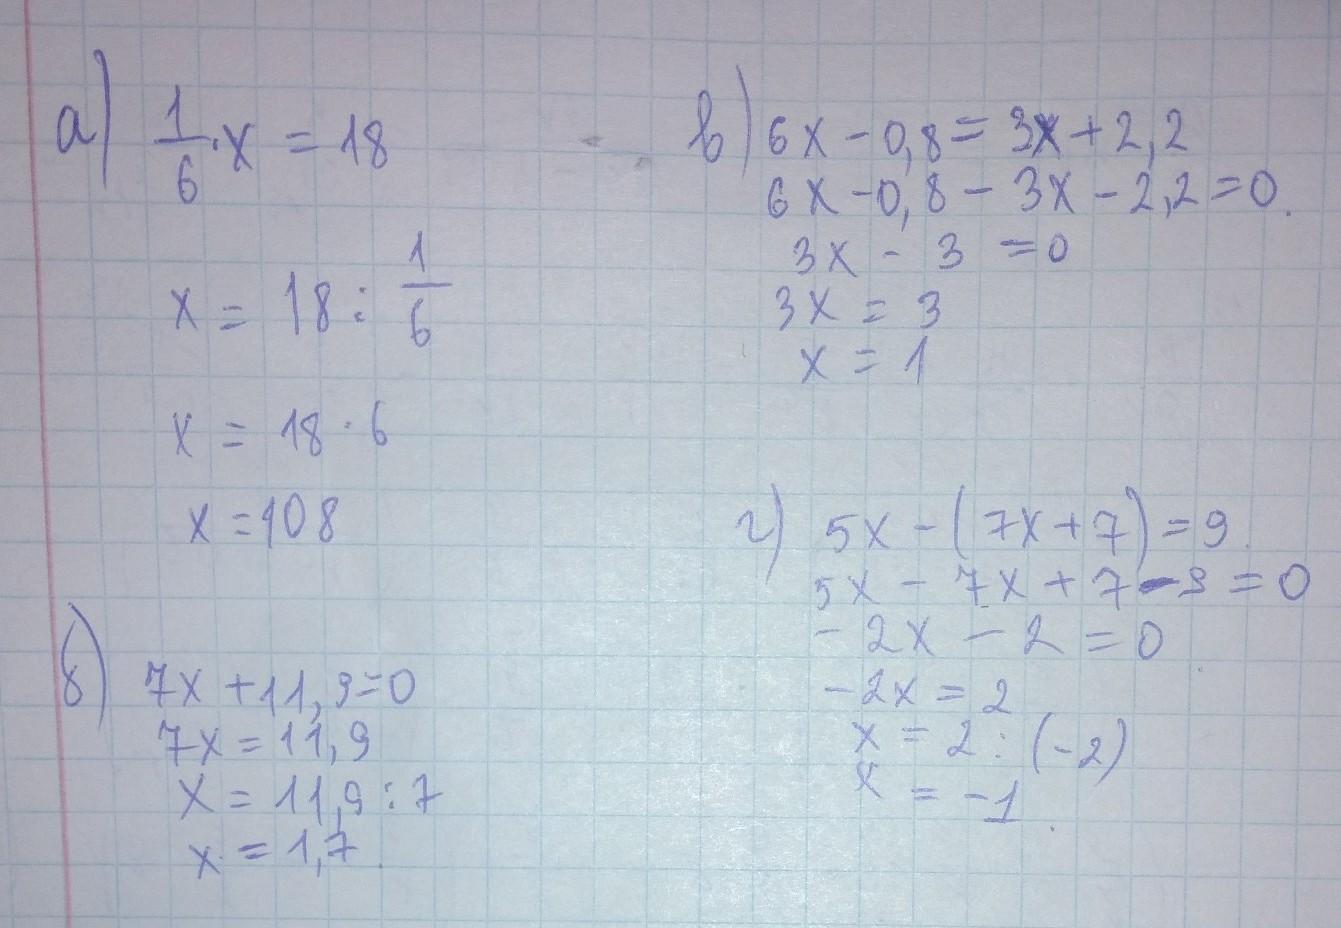 а) 1/6 · x = 18
x = 18 : 1/6
x = 18 · 6
x = 108
б) 7x + 11,9 = 0
7x = 11,9
x = 11,9 : 7
x = 1,7
в) 6x - 0,8 = 3x + 2,2
6x - 0,8 - 3x - 2,2 = 0
3x - 3 = 0
3x = 3
x = 1
г) 5x - (7x + 7) = 9
5x - 7x + 7 - 9 = 0
- 2x - 2 = 0
- 2x = 2
x = 2 : (-2)
x = -1